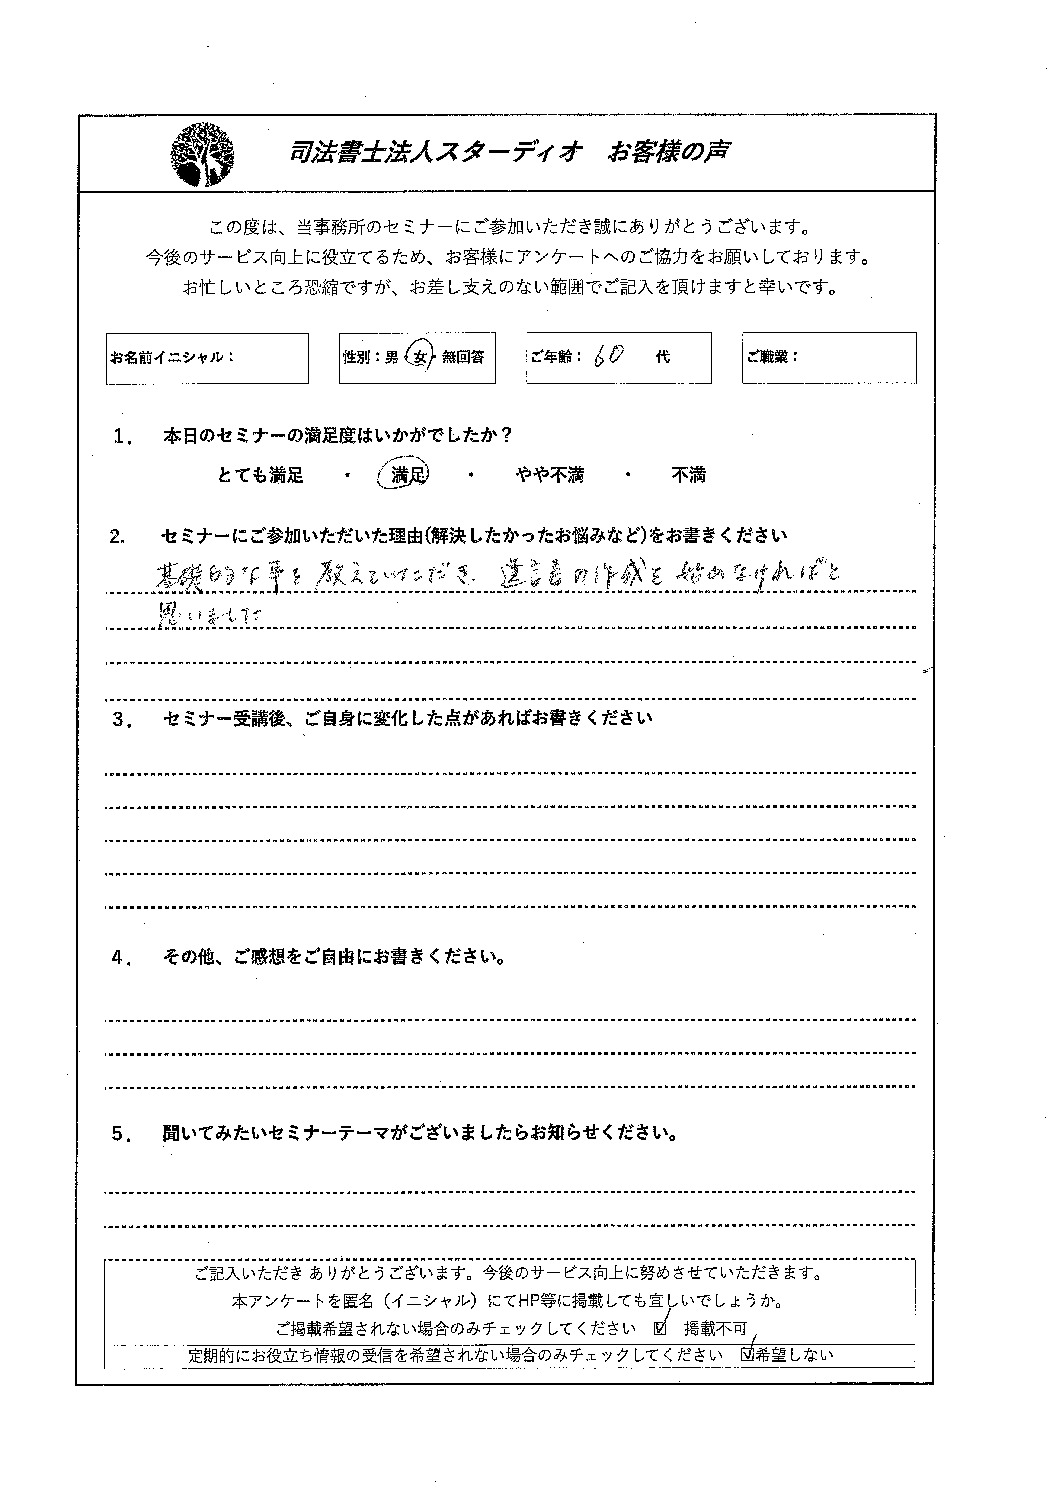 司法書士法人スターディオ お客様の声
この度は、当事務所のセミナーにご参加いただき誠にありがとうございます。
今後のサービス向上に役立てるため、お客様にアンケートへのご協力をお願いしております。
お忙しいところ恐縮ですが、お差し支えのない範囲でご記入を頂けますと幸いです。
お名前イニシャル： 性別：男・女・無回答 ご年齢： 60 代 ご職業：
1． 本日のセミナーの満足度はいかがでしたか？
とても満足 ・ 満足 ・ やや不満 ・ 不満
2. セミナーにご参加いただいた理由(解決したかったお悩みなど)をお書きください
基礎的な事を教えていただき、遺言書の作成を始めなければと
思いました
3． セミナー受講後、ご自身に変化した点があればお書きください
4． その他、ご感想をご自由にお書きください。
5． 聞いてみたいセミナーテーマがございましたらお知らせください。
ご記入いただき ありがとうございます。今後のサービス向上に努めさせていただきます。
本アンケートを匿名（イニシャル）にてHP等に掲載しても宜しいでしょうか。
ご掲載希望されない場合のみチェックしてください ☑ 掲載不可
定期的にお役立ち情報の受信を希望されない場合のみチェックしてください ☑希望しない